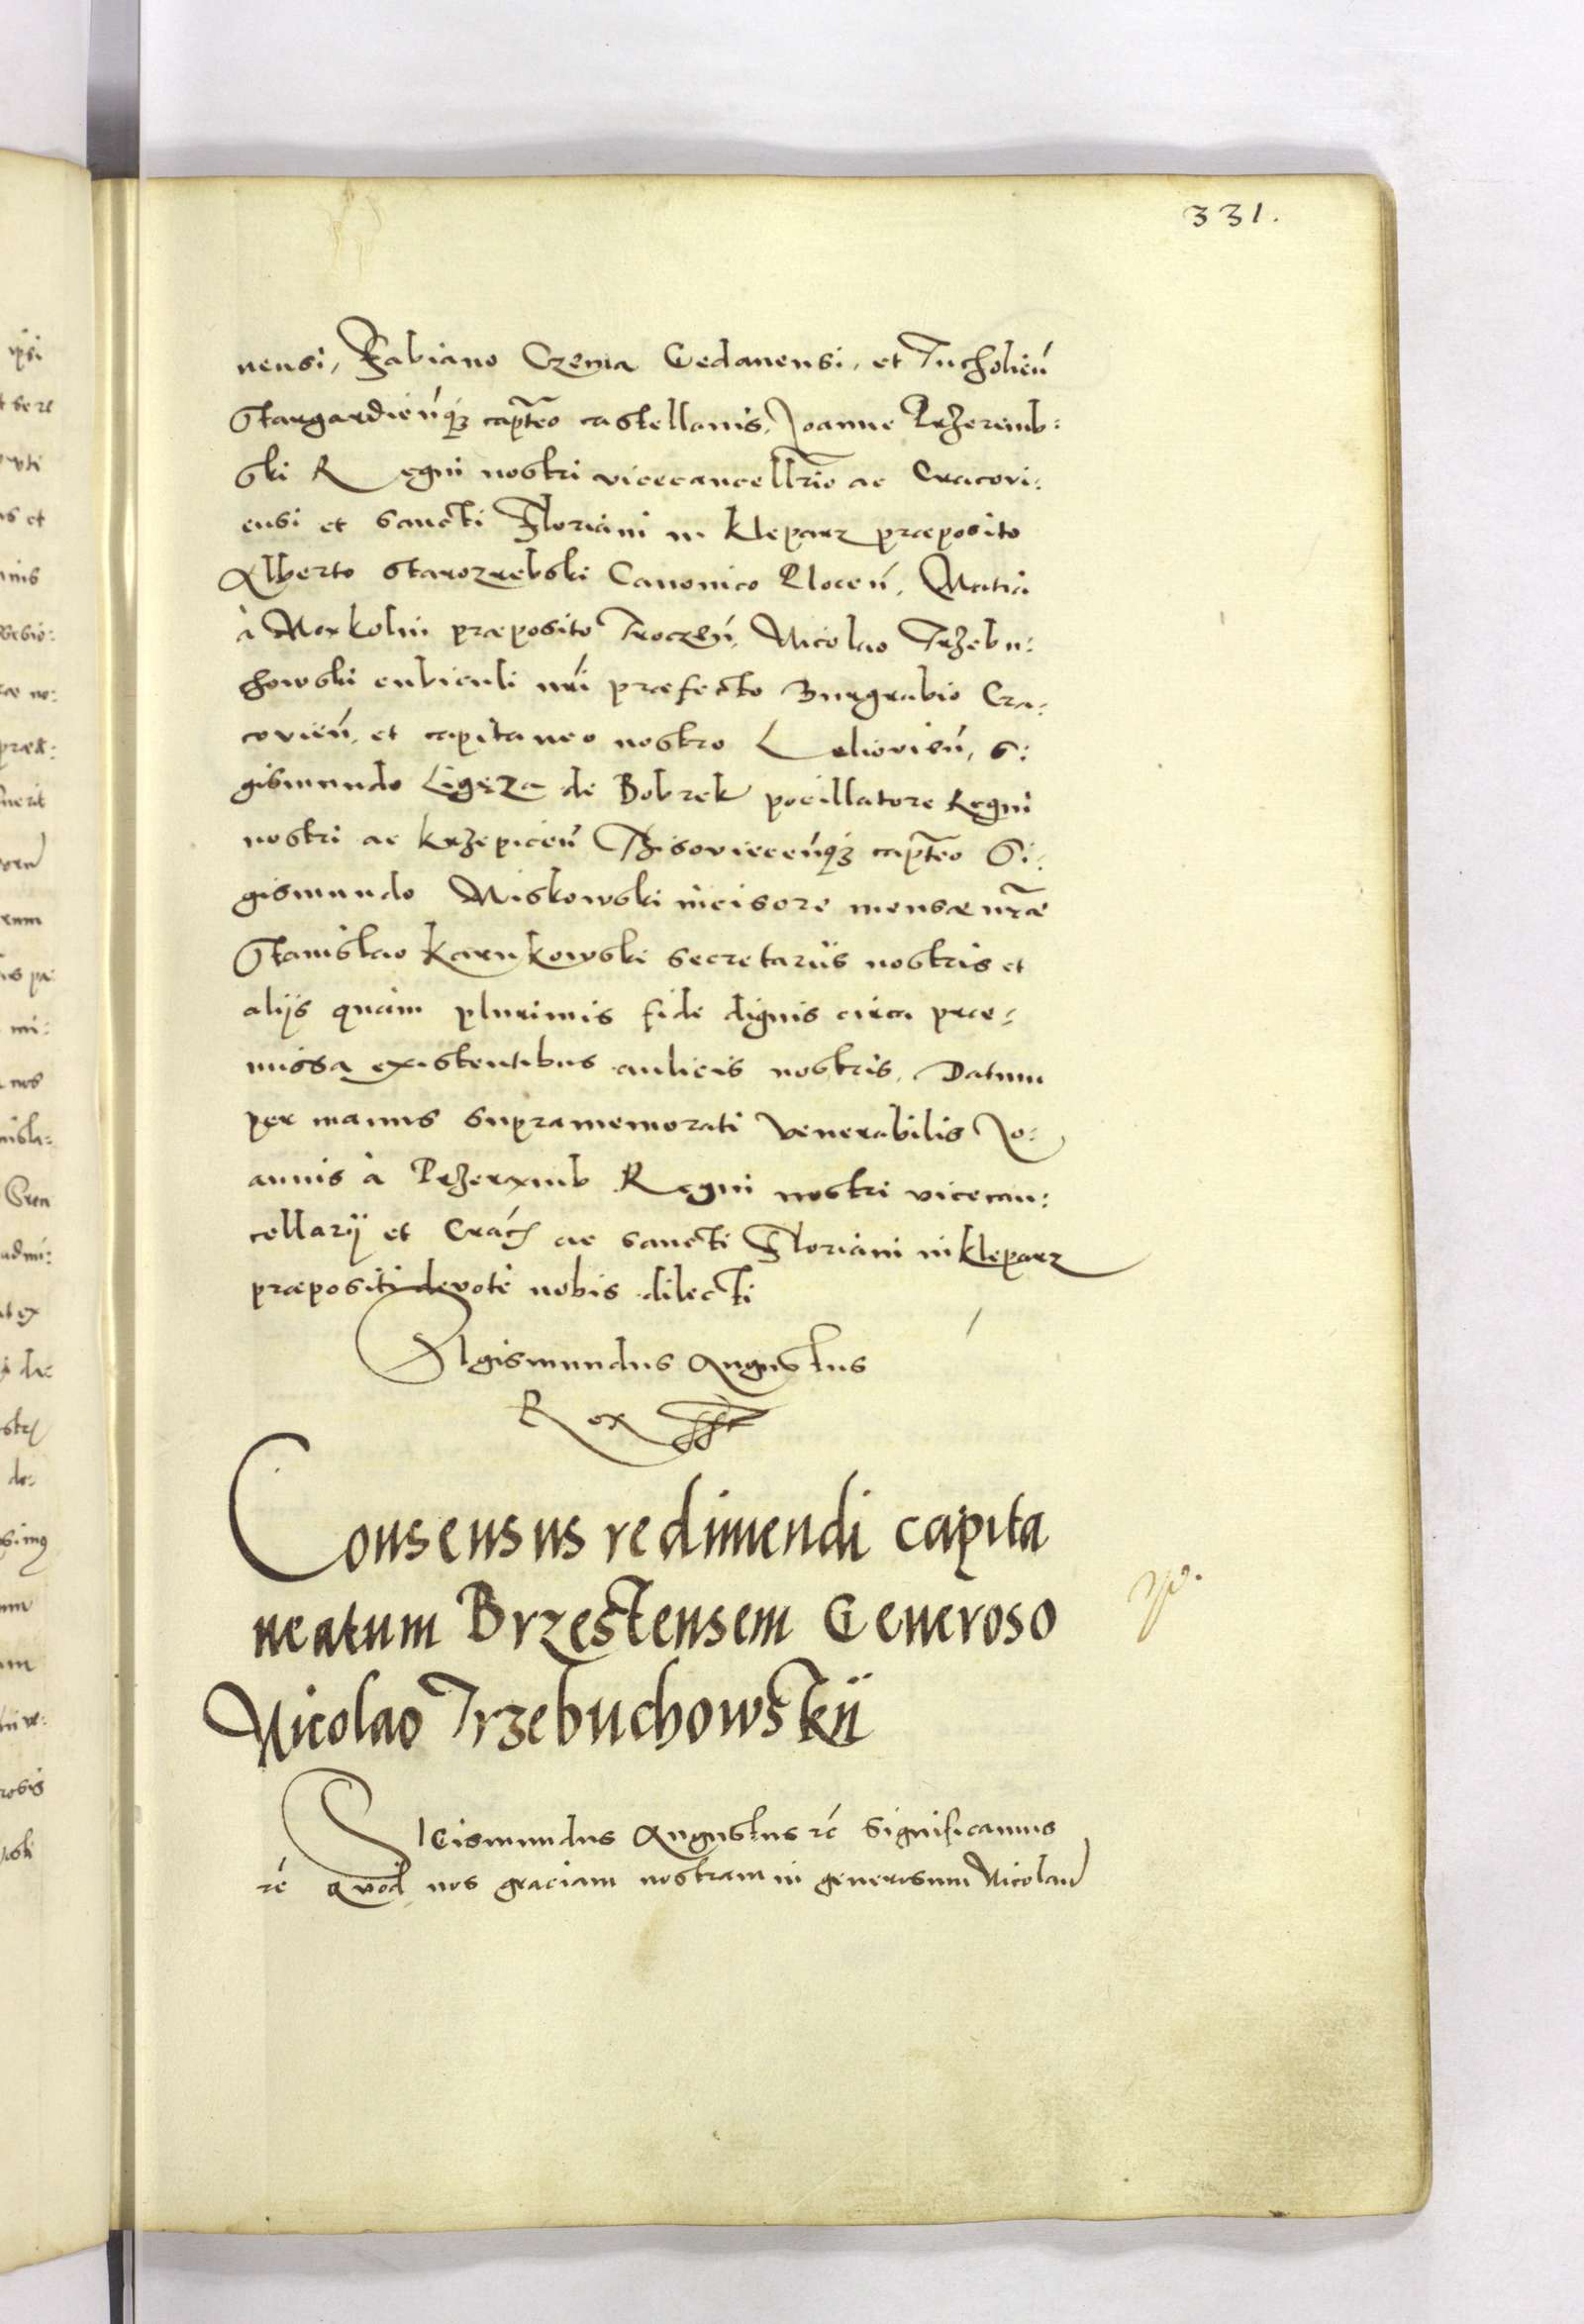 331.
nensi, Fabiano Czema Gedanensi, et Tucholień
Stargardieńq₃ capt̃eo castellanis, Joanne Przeremb:
ski Regni nostri vicecancellr̃io ac Cracovi:
ensi et sancti Floriani in Kleparz præposito
Alberto Starozrebski Canonico Ploceń, Matia
à Moxkolin præposito Troczeń, Nicolao Trzebu:
chowski cubiculi nr̃i præfecto Burgrabio Cra:
covień, et capitaneo nostro Leliovień, S:
gismundo Ligęza de Bobrek pocillatore Regni
nostri ac Krzepiceń capt̃eo Si:
gismundo Miskowski incisore mensæ nr̃æ
Stanislao Karnkowski secretariis nostris et
alijs quàm plurimis fide dignis circa præ:
missa existentibus aulicis nostris, Datum
per manus supramemorati venerabilis Jo:
annis à Przeręmb Regni nostri vicecan:
cellarij et Crac̃ ac sancti Floriani in Kleparz
præpositi devotè nobis dilecti
SIgismundus Augustus
Rex
Consensus redimendi capita
neatum Brzestensem Generoso
Nicolao Trzebuchowskii
SIGismundus Augustus rć Significamus
rć Quod nos graciam nostram in generosum Nicolaũ